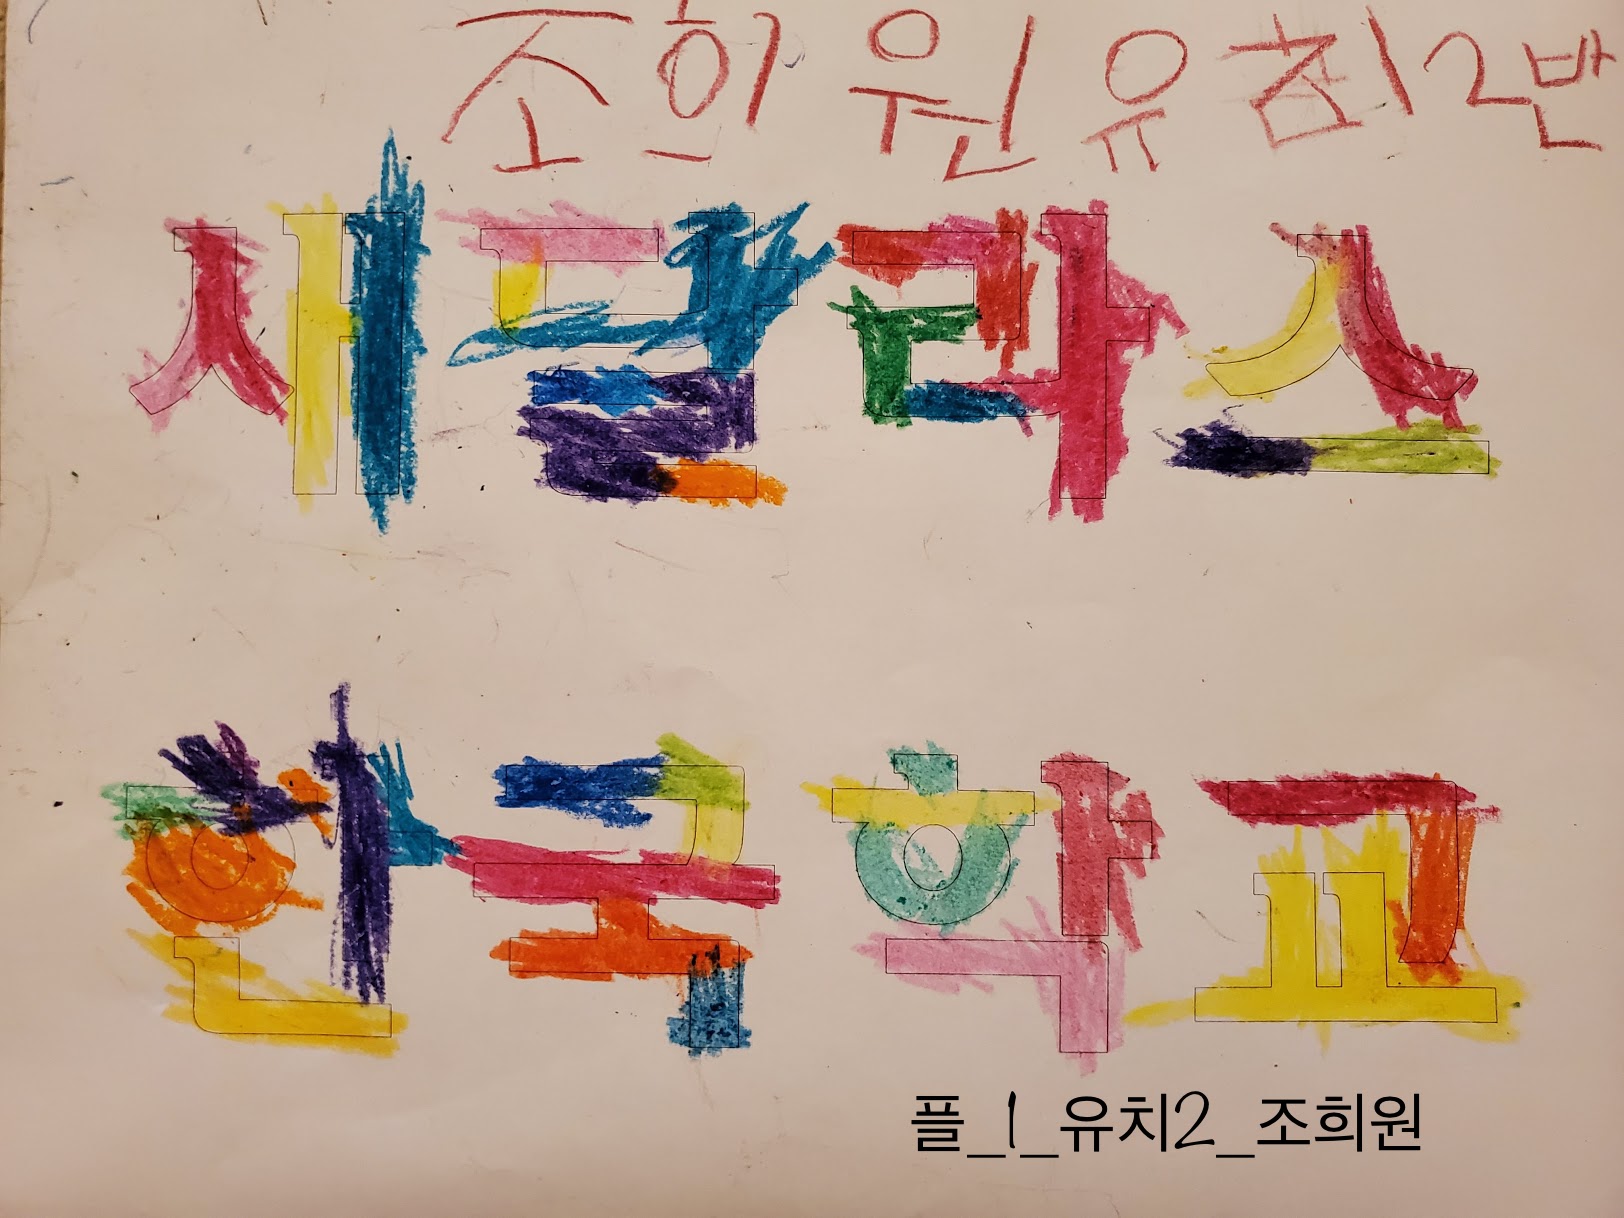 조희원 유치2반
새달라스
한국학교
플_1_유치2_조희원